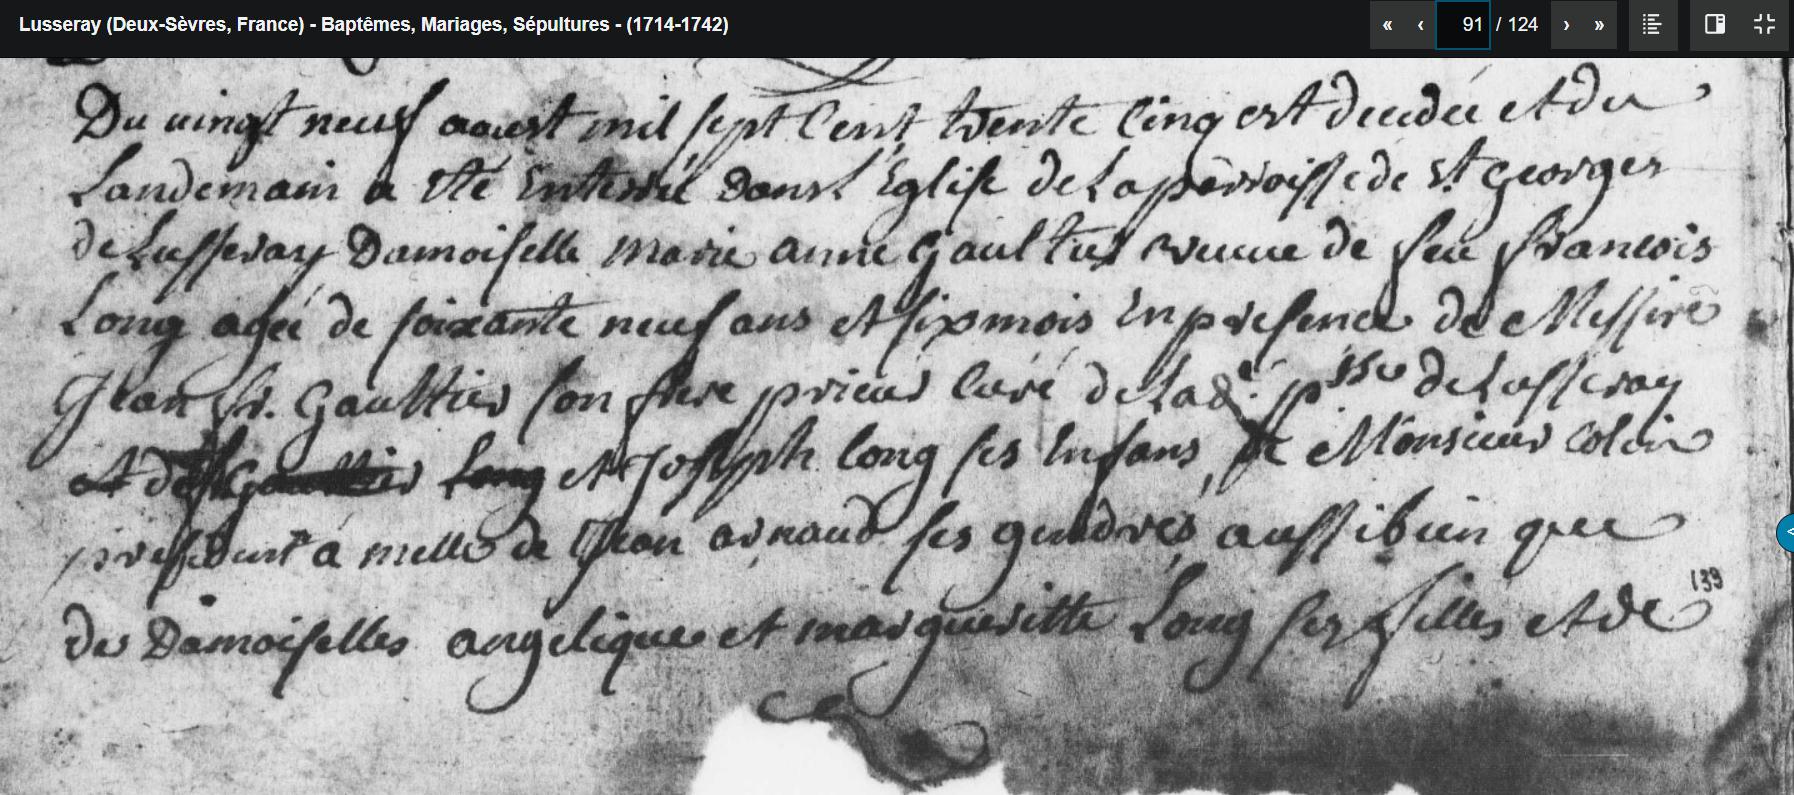 Lusseray (Deux-Sèvres, France) - Baptêmes, Mariages, Sépultures - (1714-1742)
« ‹ 91 / 124 › »
Du vingt neuf aoust mil sept Cent trente Cinq est decedée et du
Landemain a été Enterrée Dans L'Église de La parroisse de St Georges
de Lusseray Damoiselle marie anne Gaultier veuue de feu francois
Long ageé de soixante neuf ans et six mois En presence de Messire
Jean fr. Gaultier son frere prieur Curé de Lade psse de Lusseray
et Joseph long ses Enfans, de Monsieur colin
president a melle de Jean arnaud ses gendres aussi bien que
des Damoiselles angelique et margueritte Long ses filles et de
139